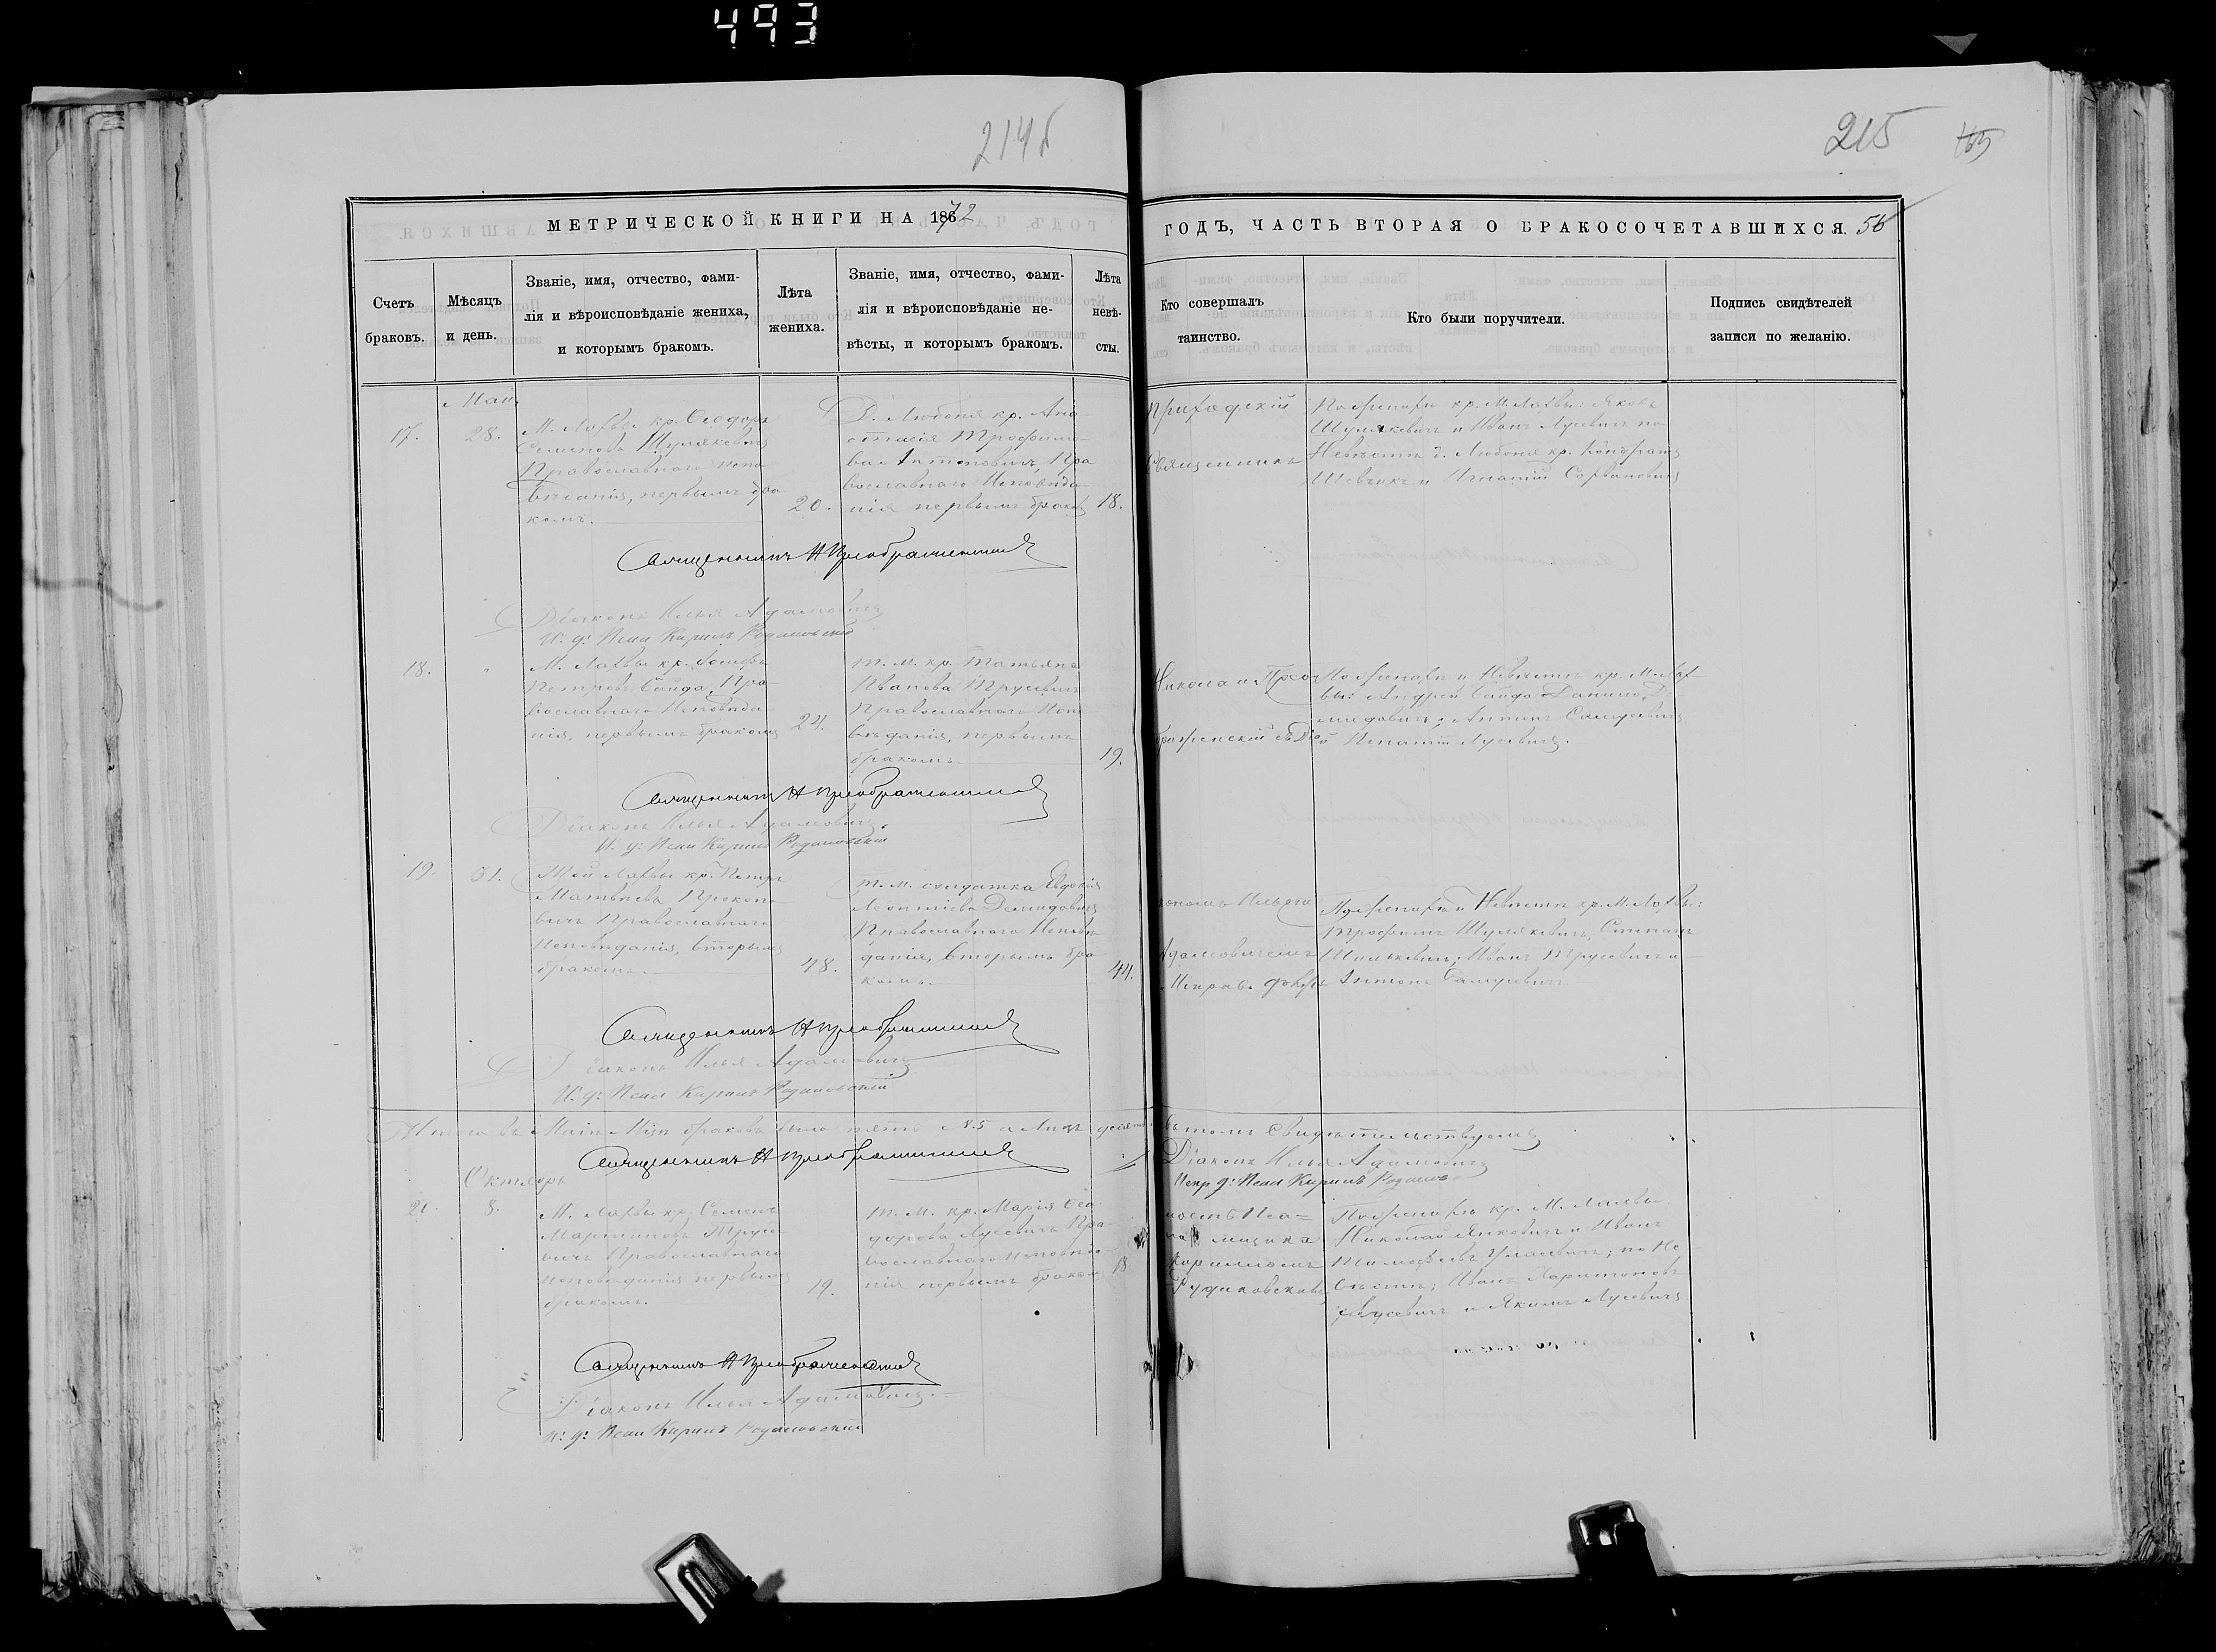 493
214б
215
165
МЕТРИЧЕСКОЙ КНИГИ НА 1872
ГОДЪ, ЧАСТЬ ВТОРАЯ О БРАКОСОЧЕТАВШИХСЯ. 56
Счетъ
браковъ.
Мѣсяцъ
и день.
Званіе, имя, отчество, фами-
лія и вѣроисповѣданіе жениха,
и которымъ бракомъ.
Лѣта
жениха.
Званіе, имя, отчество, фами-
лія и вѣроисповѣданіе не-
вѣсты, и которымъ бракомъ.
Лѣта
невѣ-
сты.
Кто совершалъ
таинство.
Кто были поручители.
Подпись свидѣтелей
записи по желанію.
Май.
17.
28.
М. Лахвы кр. Ѳеодоръ
Семеновъ Шулякевичъ
Православнаго Испо
вѣданія, первымъ бра
комъ.
20.
Д. Любоня кр. Ана
стасія Трофимо
ва Антоновичъ, Пра
вославнаго Исповѣда
нія первымъ бракомъ
18.
Приходскій
Священникъ
кр. М. Лахвы: Яковъ
Шулякевичъ и Иванъ Лусевичъ по
Невѣстѣ д. Любоня кр. Кондратъ
Шевчикъ и Игнатій
Священникъ Н Преображенскій
Діаконъ Илья Адамовичъ
И. д: Псал Кирилъ Рудаковскій
18.
"
М. Лахвы кр. Іосифъ
Петровъ Сайда, Пра-
вославнаго Исповѣда
нія, первымъ бракомъ
24.
т. м. кр. Татьяна
Иванова Трусевичъ
Православнаго Испо
вѣданія, первымъ
бракомъ.
19.
Николай Прео
браженскій съ Діа
и Невѣстѣ кр. М. Лах
вы: Андрей Сайда Данило Де
мидовичъ, Антонъ Самусевичъ
и Игнатій Лусевичъ.
Священникъ Н Преображенскій
Діаконъ Илья Адамовичъ.
И. д: Псал Кирилъ Рудаковскій
19.
31.
Той Лахвы кр. Петръ
Матвѣевъ Прокопо
вичъ Православнаго
Исповѣданія, вторымъ
бракомъ.
48.
т. м. солдатка Евдокія
Леонтіева Демидовичъ
Православнаго Исповѣ
данія, вторымъ бра
комъ.
44.
кономъ Ильею
Адамовичемъ
Исправ. долж
и Невѣстѣ кр. М. Лахвы:
Трофимъ Шулякевичъ, Степанъ
Иванъ Трусевичъ и
Антонъ Самусевичъ
Священникъ Н Преображенскій
Діаконъ Илья Адамовичъ
И. д: Псал Кирилъ Рудаковскій
Итого въ Маѣ Мцѣ браковъ было пять №. 5 а Лицъ десять въ томъ Свидѣтельствуемъ
Священникъ Н Преображенскій
Діаконъ Илья Адамовичъ
Испр д: Псал Кирилъ
Октябрь
8.
М. Лахвы кр. Семенъ
Мартиновъ Трусе
вичъ Православнаго
Исповѣданія первымъ
бракомъ.
19.
т. м. кр. Марія Ѳео
дорова Лусевичъ Пра-
вославнаго исповѣда-
нія первымъ бракомъ
18
ность Пса=
ломщика
Кирилломъ
Рудаковскимъ
кр. М. Лахвы
Николай Янкевичъ и Иванъ
по Не
вѣстѣ; Иванъ Харитоновъ
Лусевичъ и Якимъ Лусевичъ
Священникъ Н Преображенскій
Діаконъ Илья Адамовичъ.
И: д: Псал Кирилъ Рудаковскій